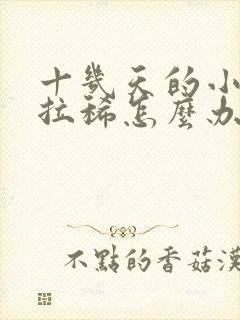 十幾天的小
拉稀怎麼办
不點的香菇漢